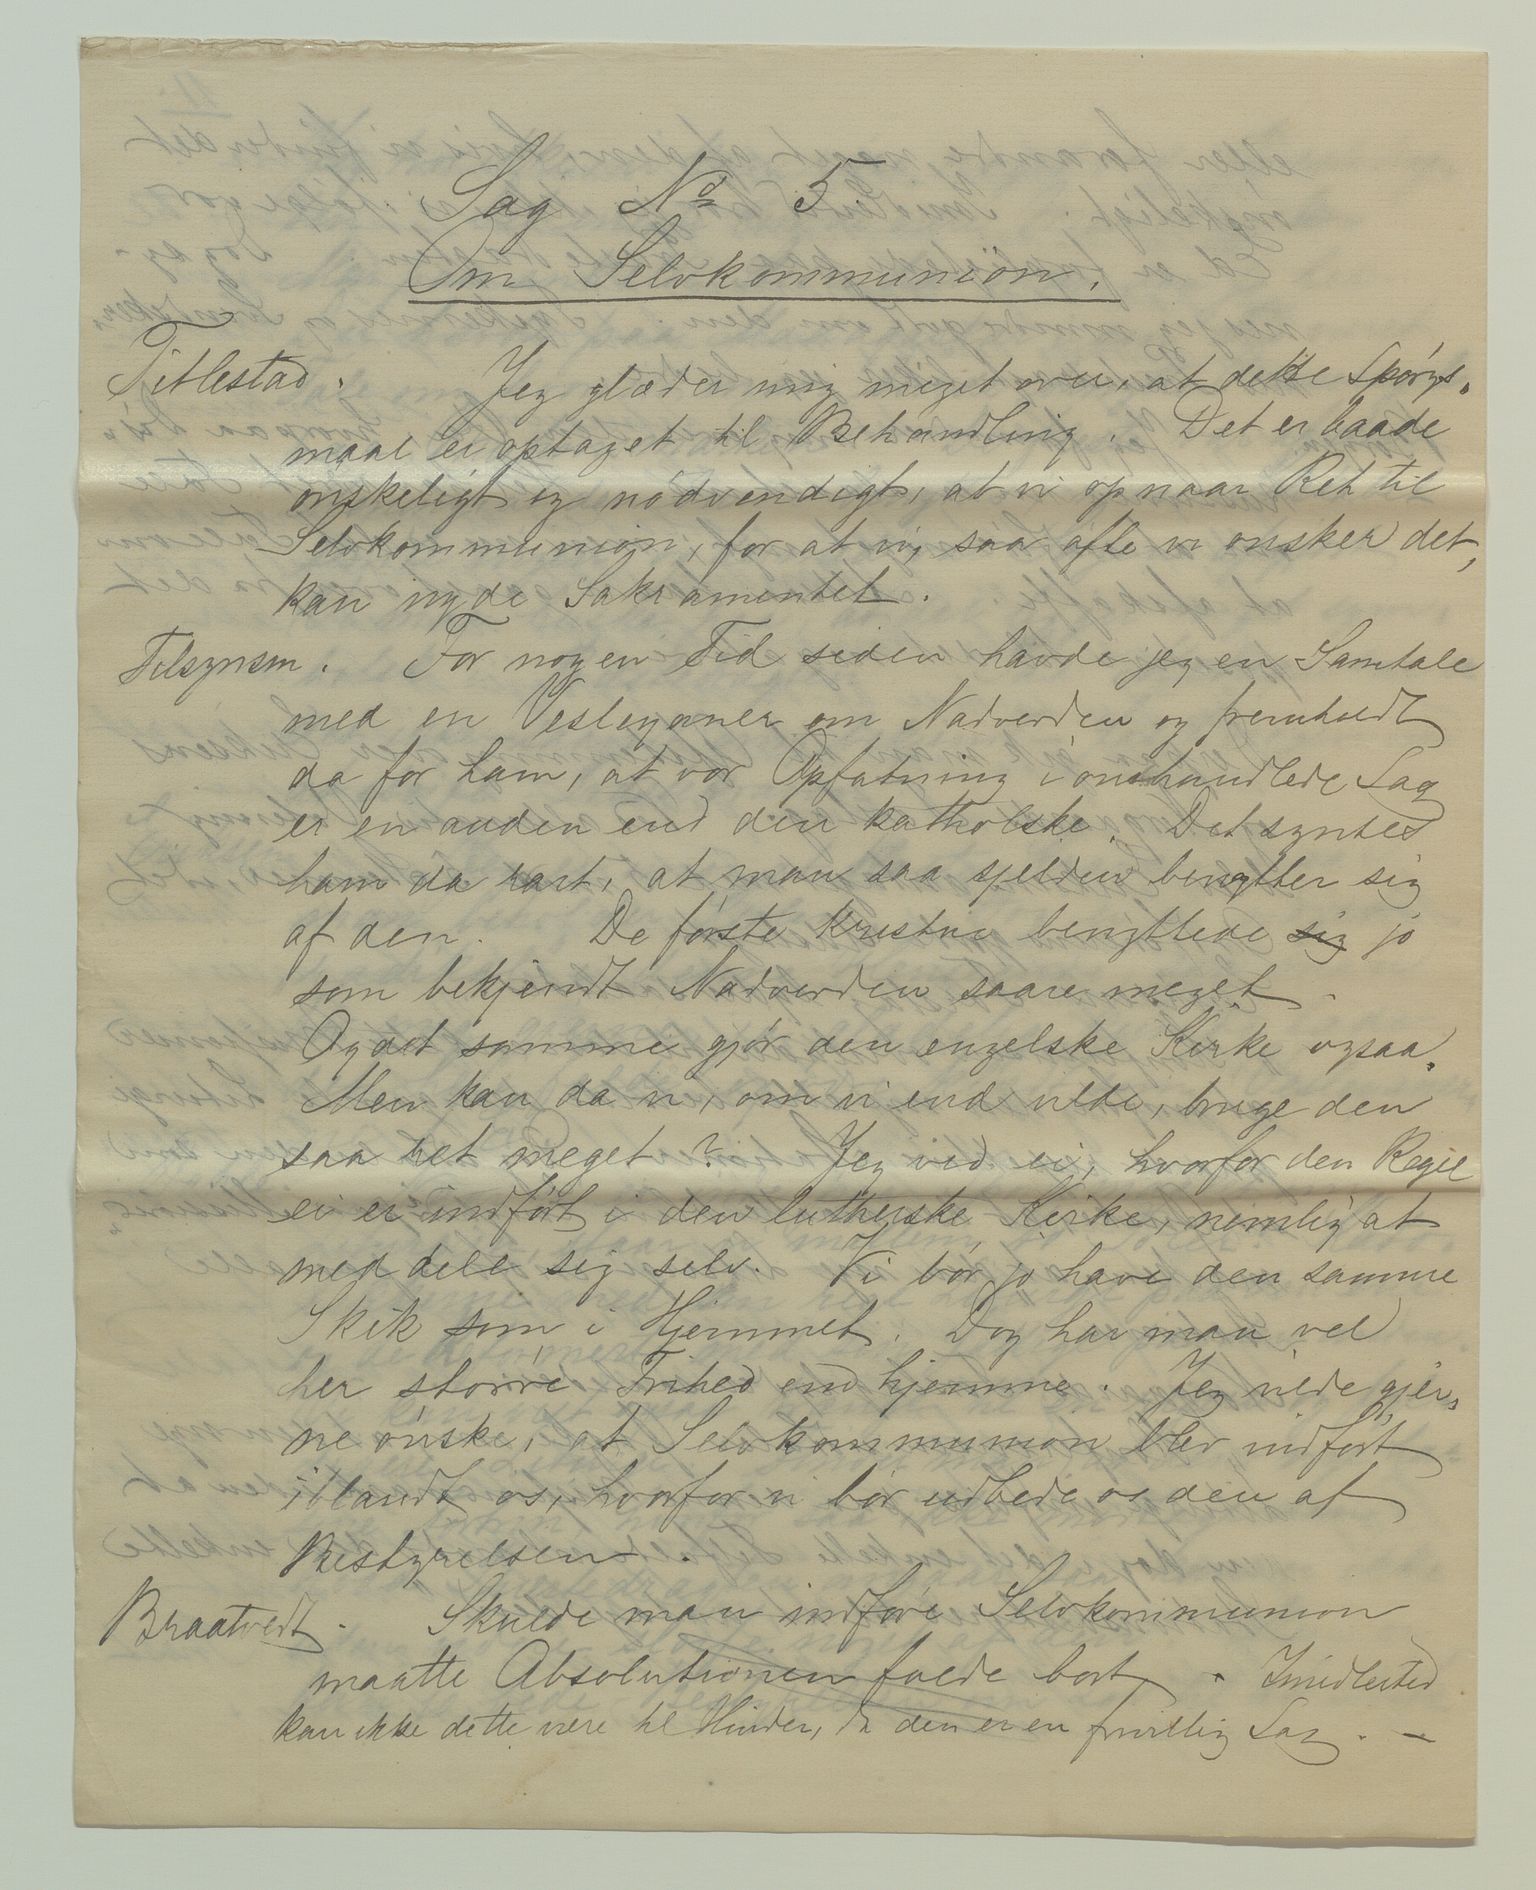 Sag No 5.
Om Selvkommunion.
Titlestad. Jeg glæder mig meget over, at dette Spörgs-
maal er optaget til Behandling. Det er baade
önskeligt og nödvendigt, at vi opnaar Ret til
Selvkommunion, for at vi, saa ofte vi önsker det,
kan nyde Sakramentet.
Tilsynsm. For nogen Tid siden havde jeg en Samtale
med en Wesleyaner om Nadverden og fremholdt
da for ham, at vor Opfatning i omhandlede Sag
er en anden end den katholske. Det syntes
ham da rart, at man saa sjelden benytter sig
af den. De förste Kristne benyttede sig jo
som bekjendt Nadverden saare meget.
Og det samme gjör den engelske Kirke ogsaa.
Men kan da vi, om vi end vilde, bruge den
saa ret meget? Jeg ved ei, hvorfor den Regel
ei er indfört i den lutherske Kirke, nemlig at
meddele sig selv. Vi bör jo have den samme
Skik som i Hjemmet. Dog har man vel
her större Frihed end hjemme. Jeg vilde gjer-
ne önske, at Selvkommunion blev indfört
iblandt os, hvorfor vi bör udbede os den af
Bestyrelsen.
Braatvedt. Skulde man indföre Selvkommunion
maatte Absolutionen falde bort. Imidlertid
kan ikke dette være til Hinder, da den er en frivillig Sag. —